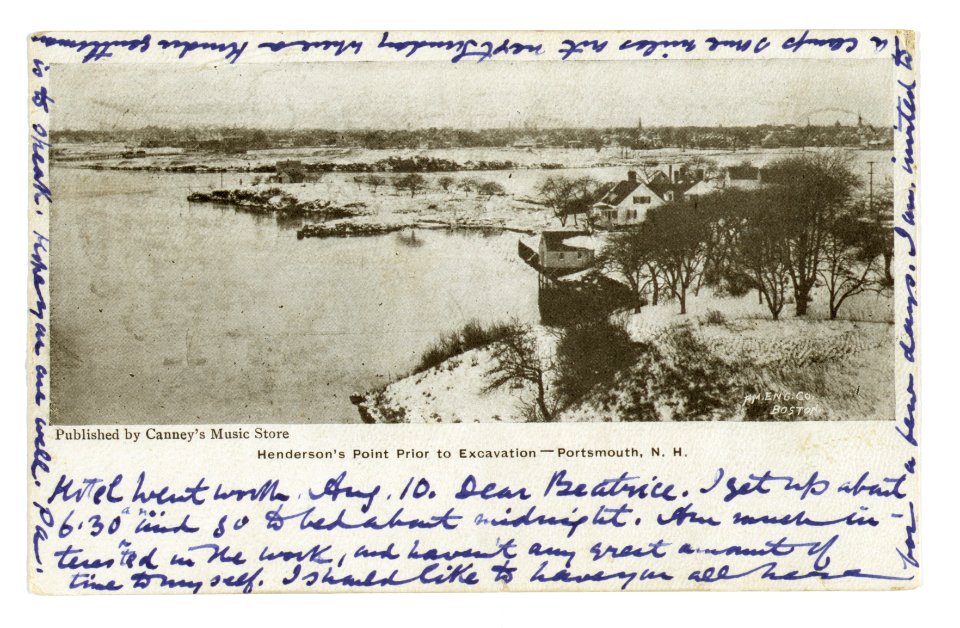 AM.ENG.CO.
BOSTON.
Published by Canney's Music Store
Henderson's Point Prior to Excavation — Portsmouth, N. H.
Hotel Wentworth. Aug. 10. Dear Beatrice. I get up about
6.30 and go to bed about midnight. Am much in-
terested in the work, and haven't any great amount of
time to myself. I should like to have you all here
for a few days. I am invited to
a camp some miles out next Sunday where a Hindu gentleman
is to speak. Hope you are well. Pa.